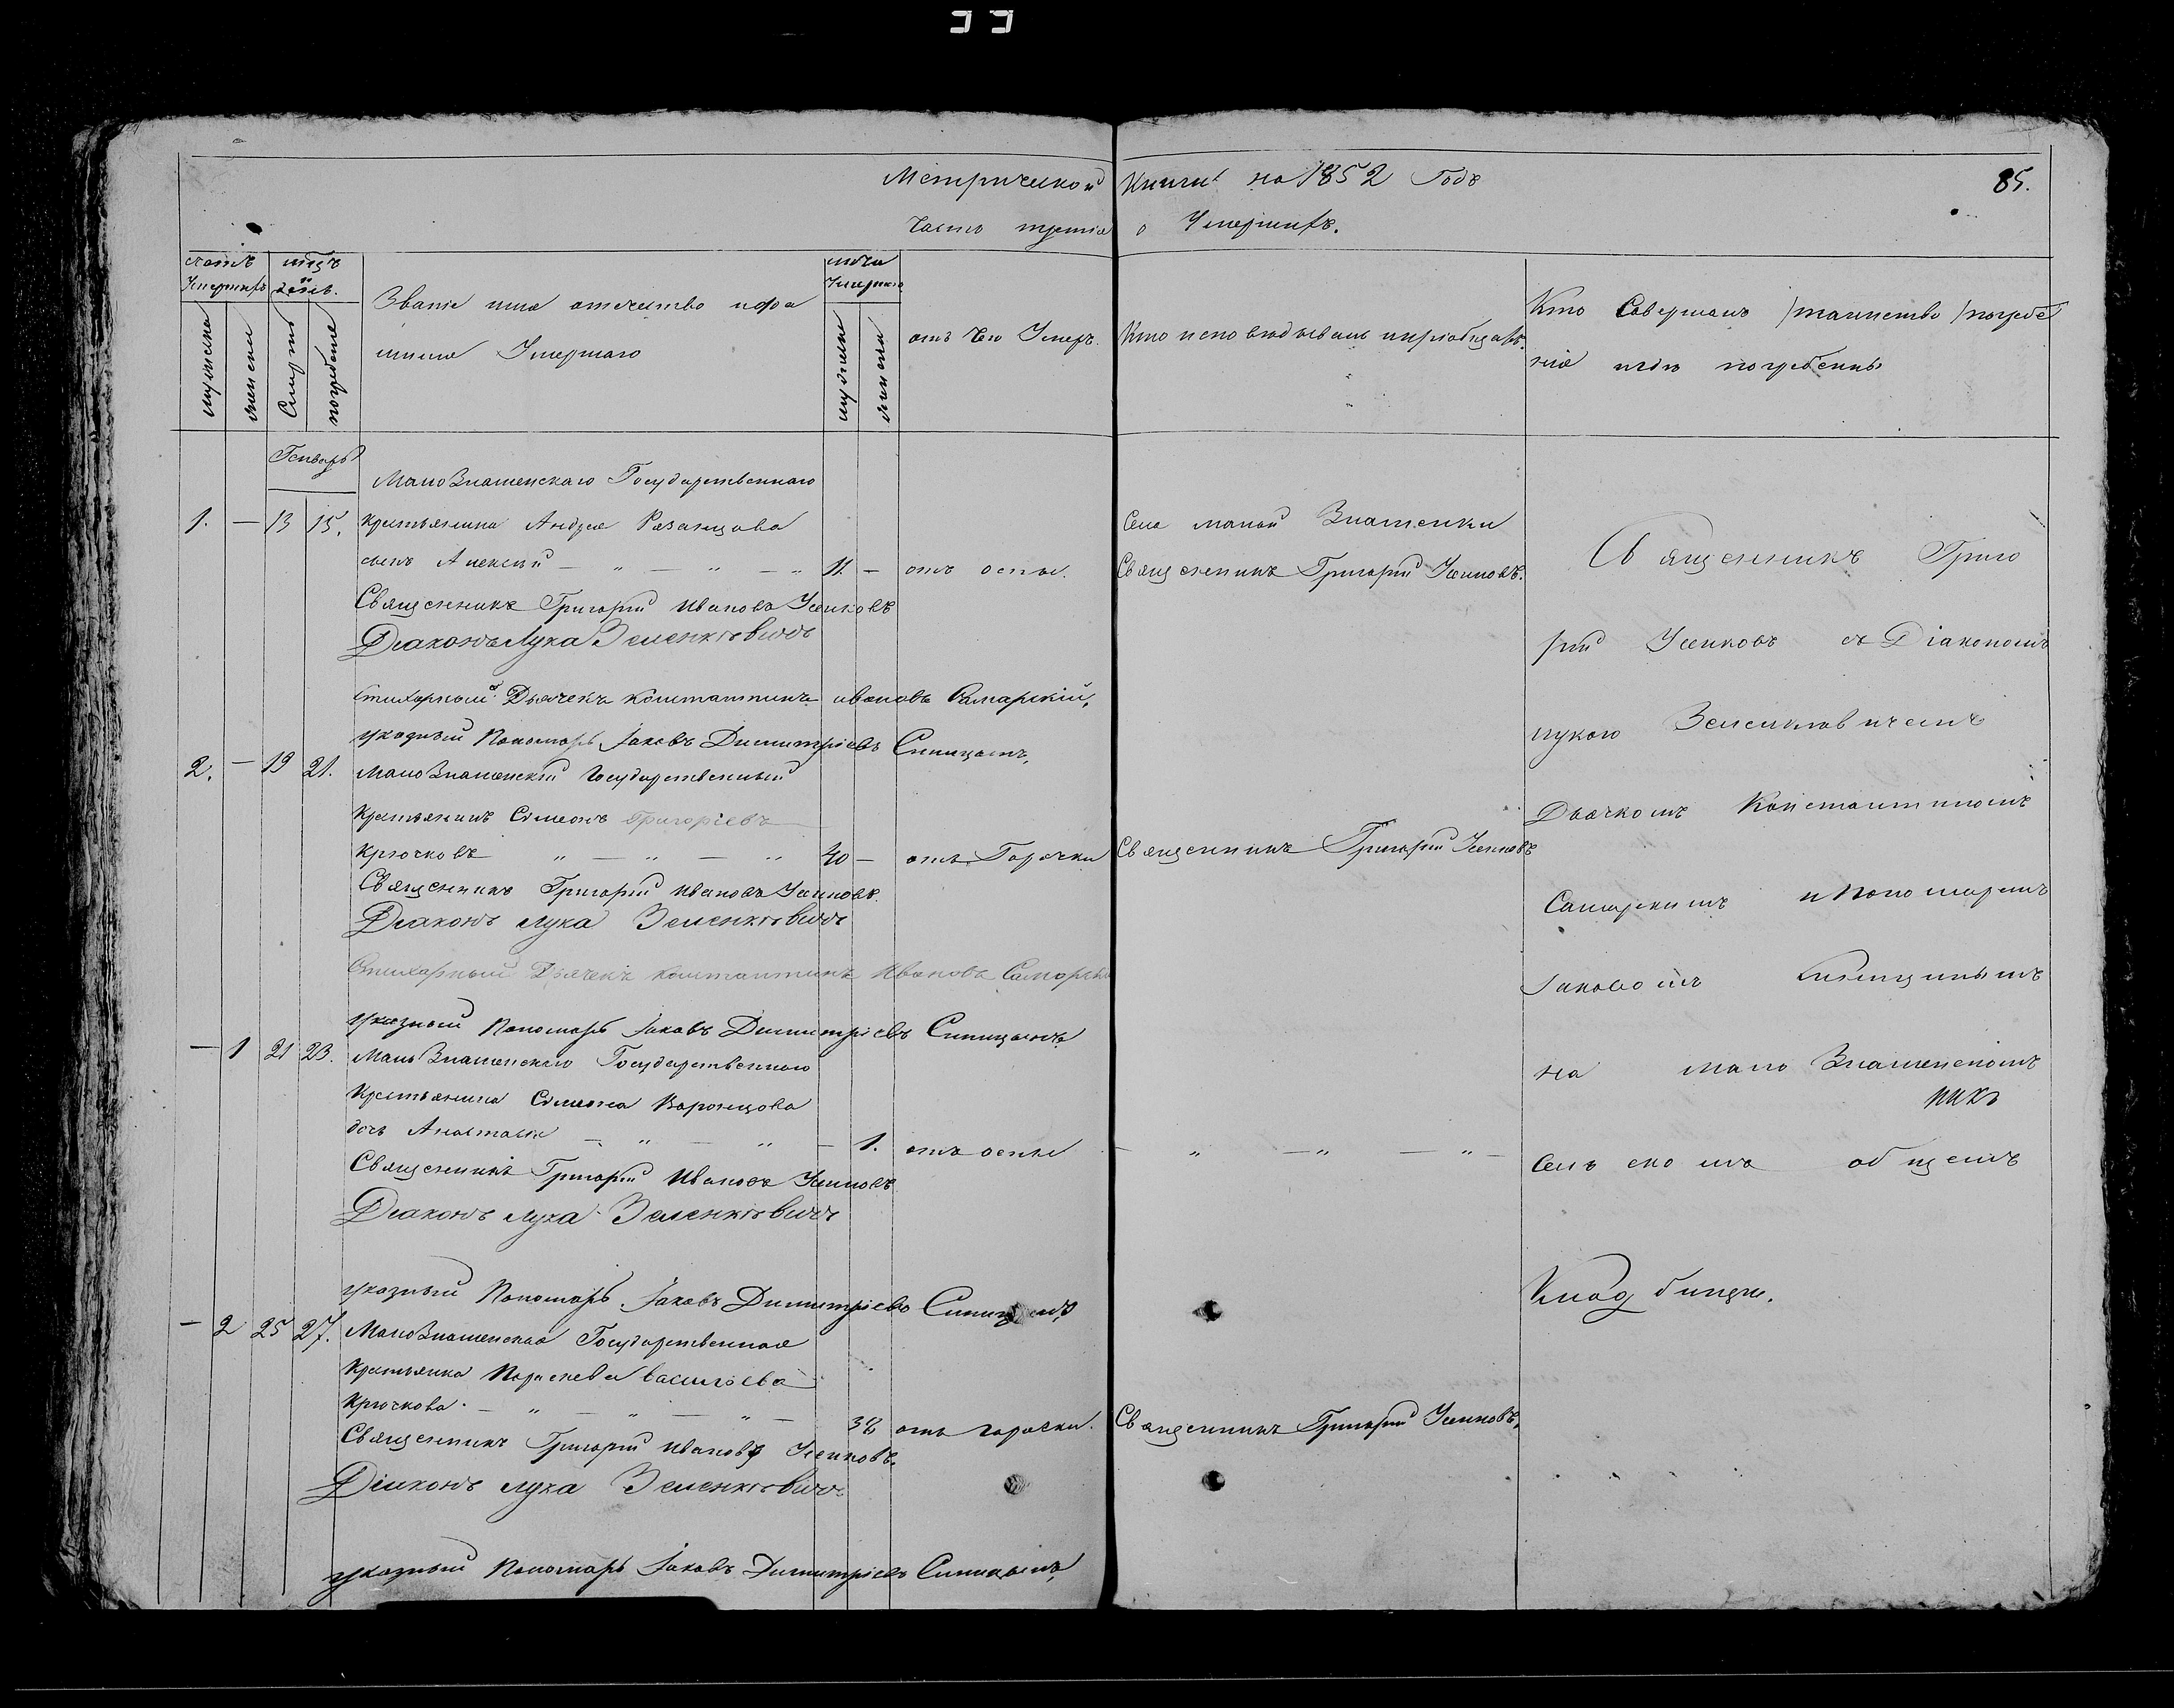 Метрической Книги на 1852 Годъ
85.
Часть третія о Умершихъ.
счетъ Умершихъ
мужеска
женска
мѣсяцъ и день.
Смерти
погребеніе
Званіе имя отечество и фа
милія Умершаго
лѣта Умершаго
мужеска
женска
отъ чего Умеръ.
Кто исповѣдывалъ и пріобщалъ.
Кто Совершалъ /таинство/ погребе
ніе и гдѣ погребены
Генварь
МалоЗнаменскаго Государственнаго
1. — 13 15. крестьянина Андрея Разанцова
сынъ Алексій — „ — „ — „ 11. — отъ оспы.
Священникъ Григорій Ивановъ Усиковъ
Діаконъ Лука Зеленкѣвичъ
стихарный Дьячекъ Константинъ ивановъ Самарскій,
указный Пономарь Іаковъ Димитріевъ Синицынъ,
2. — 19 21. МалоЗнаменскій Государственный
Крестьянинъ Симеонъ Григоріевъ
Крючковъ „ — „ — „ 40 — отъ Горячки
Священникъ Григорій Ивановъ Усиковъ.
Діаконъ Лука Зеленкѣвичъ
Стихарный Дьячекъ Константинъ Ивановъ Самарскій
указный Пономарь Іаковъ Димитріевъ Синицынъ
— 1 21 23. МалоЗнаменскаго Государственнаго
Крестьянина Симеона Воронцова
дочь Анастасія — „ — „ — 1. отъ оспы
Священникъ Григорій Ивановъ Усиковъ
Діаконъ Лука Зеленкѣвичъ
указный Пономарь Іаковъ Димитріевъ Синицынъ
— 2 25 27. МалоЗнаменская Государственная
Крестьянка Параскева Васильева
Крючкова. — „ — „ — „ — 38 отъ горячки.
Священникъ Григорій Ивановъ Усиковъ.
Діаконъ Лука Зеленкѣвичъ
указный Пономарь Іаковъ Димитріевъ Синицынъ,
Села малой Знаменки
Священникъ Григорій Усиковъ.
Священникъ Григорій Усиковъ
— „ — „ — „ —
Священникъ Григорій Усиковъ,
Священникъ Григо
рій Усиковъ съ Діакономъ
лукою Зеленкѣвичемъ
Дьячкомъ Константиномъ
Самарскимъ и Пономаремъ
Іаковомъ Синицынымъ
на мало Знаменскомъ
Сельскомъ общемъ
Кладбищи.